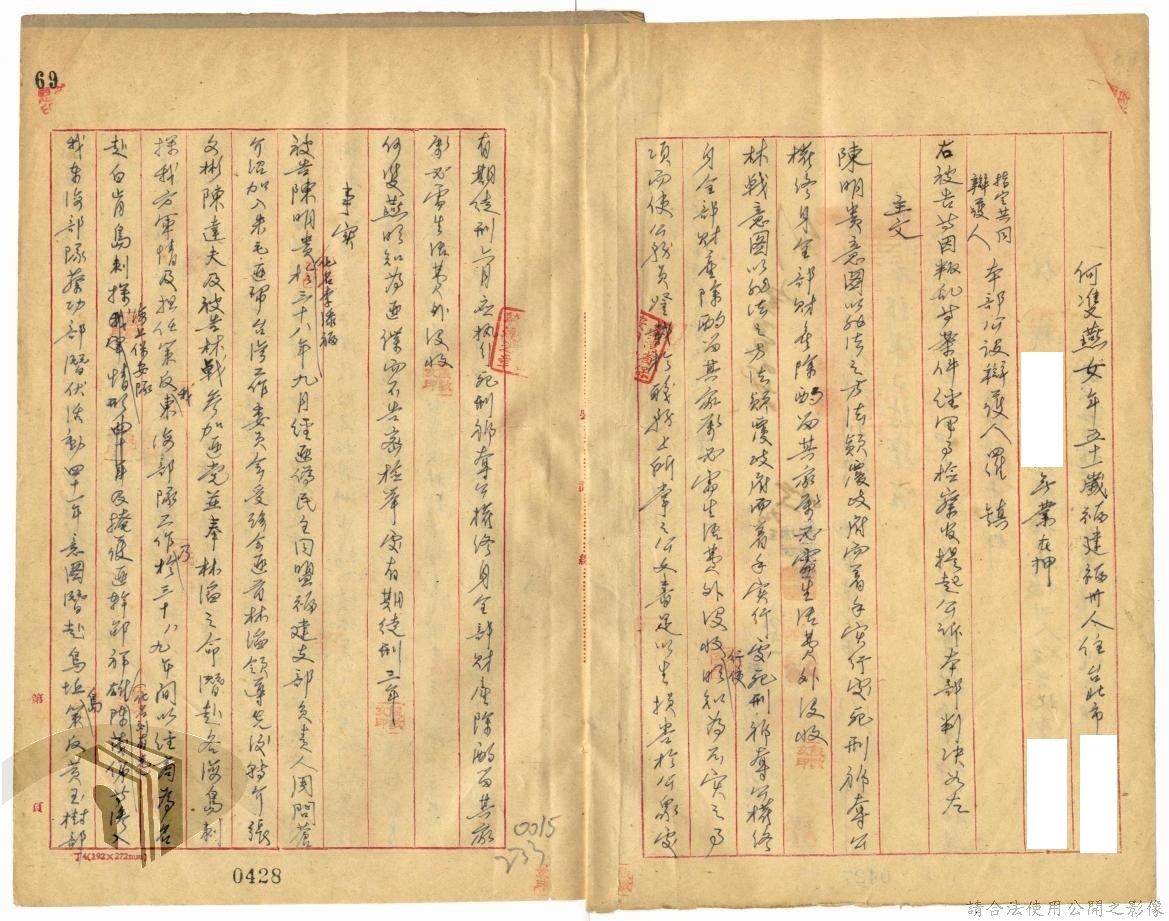 何雙燕女年五十一歲福建福州人住台北市
無業在押
指定共同
辯護人 本部公設辯護人羅 鎮
右被告等因叛亂等案件經軍事檢察官提起公訴本部判決如左
主文
陳明貴意圖以非法之方法顛覆政府而着手實行處死刑褫奪公
權終身全部財產除酌留其家屬必需生活費外沒收
林戰意圖以非法之方法顛覆政府而着手實行處死刑褫奪公權終
身全部財產除酌留其家屬必需生活費外沒收明知為不實之事
行使
項而使公務員登載於職務上所掌之公文書足以生損害於公眾處
有期徒刑六月應執行死刑褫奪公權終身全部財產除酌留其家
屬必需生活費外沒收
何雙燕明知為匪諜而不告密檢舉處有期徒刑三年
事實
被告陳明貴於三十八年九月經匪偽民主同盟福建支部負責人周問蒼
化名李添福
介紹加入朱毛匪幫台灣工作委員會受該會匪首林滄領導先後轉介張
文彬陳達夫及被告林戰參加匪黨並奉林滄之命潛赴各海島刺
探我方軍情及担任策反東海部隊工作於三十八九年間以經商為名
我
乃
赴白肯島刺探
海上保安隊
軍情
及掩護匪幹鄒祥雄陳
等潛入
我東海部隊蔡功部潛伏活動四十一年意圖潛赴烏坵策反黃玉樹部
島
69
第 頁
J4(192×272mm)
0428
0015
233
請合法使用公開之影像